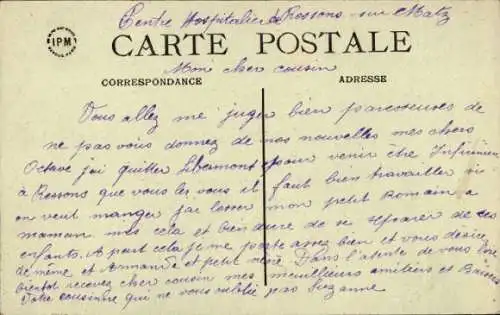 Centre Hospitalier de Ressons-sur-Matz
IPM
CARTE POSTALE
Mon cher cousin
CORRESPONDANCE
ADRESSE
Vous allez me juger bien paresseuse de
ne pas vous donnez de mes nouvelles mes chers
Octave j'ai quitter Libermont pour venir être Infirmière
à Ressons que voules vous il faut bien travailler si
on veut manger j'ai laisser mon petit Romain a
maman mes cela et bien dure de se séparer de ses
enfants. A part cela je me porte assez bien et vous désire
de même et Armand et petit René. Dans l'atente de vous lire
bientot recevez cher cousin mes meuilleurs amitiers et Baisers
Votre cousinne qui ne vous oublie pas Suzanne